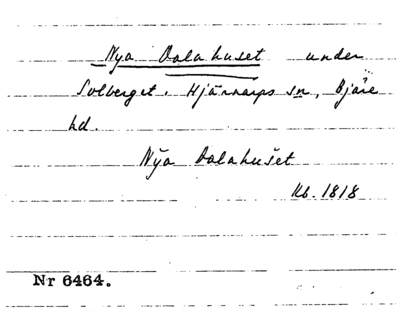 Nya Dalahuset under
Solberget. Hjärnarps sn, Bjäre
hd.
Nya Dalahuset
Kb. 1818
Nr 6464.